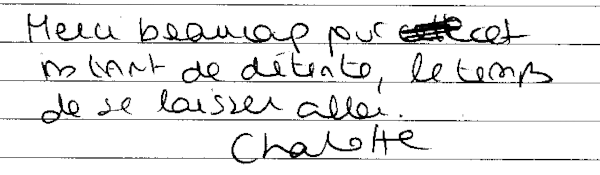 Merci beaucoup pour cet
instant de détente, le temps
de se laisser aller.
Charlotte